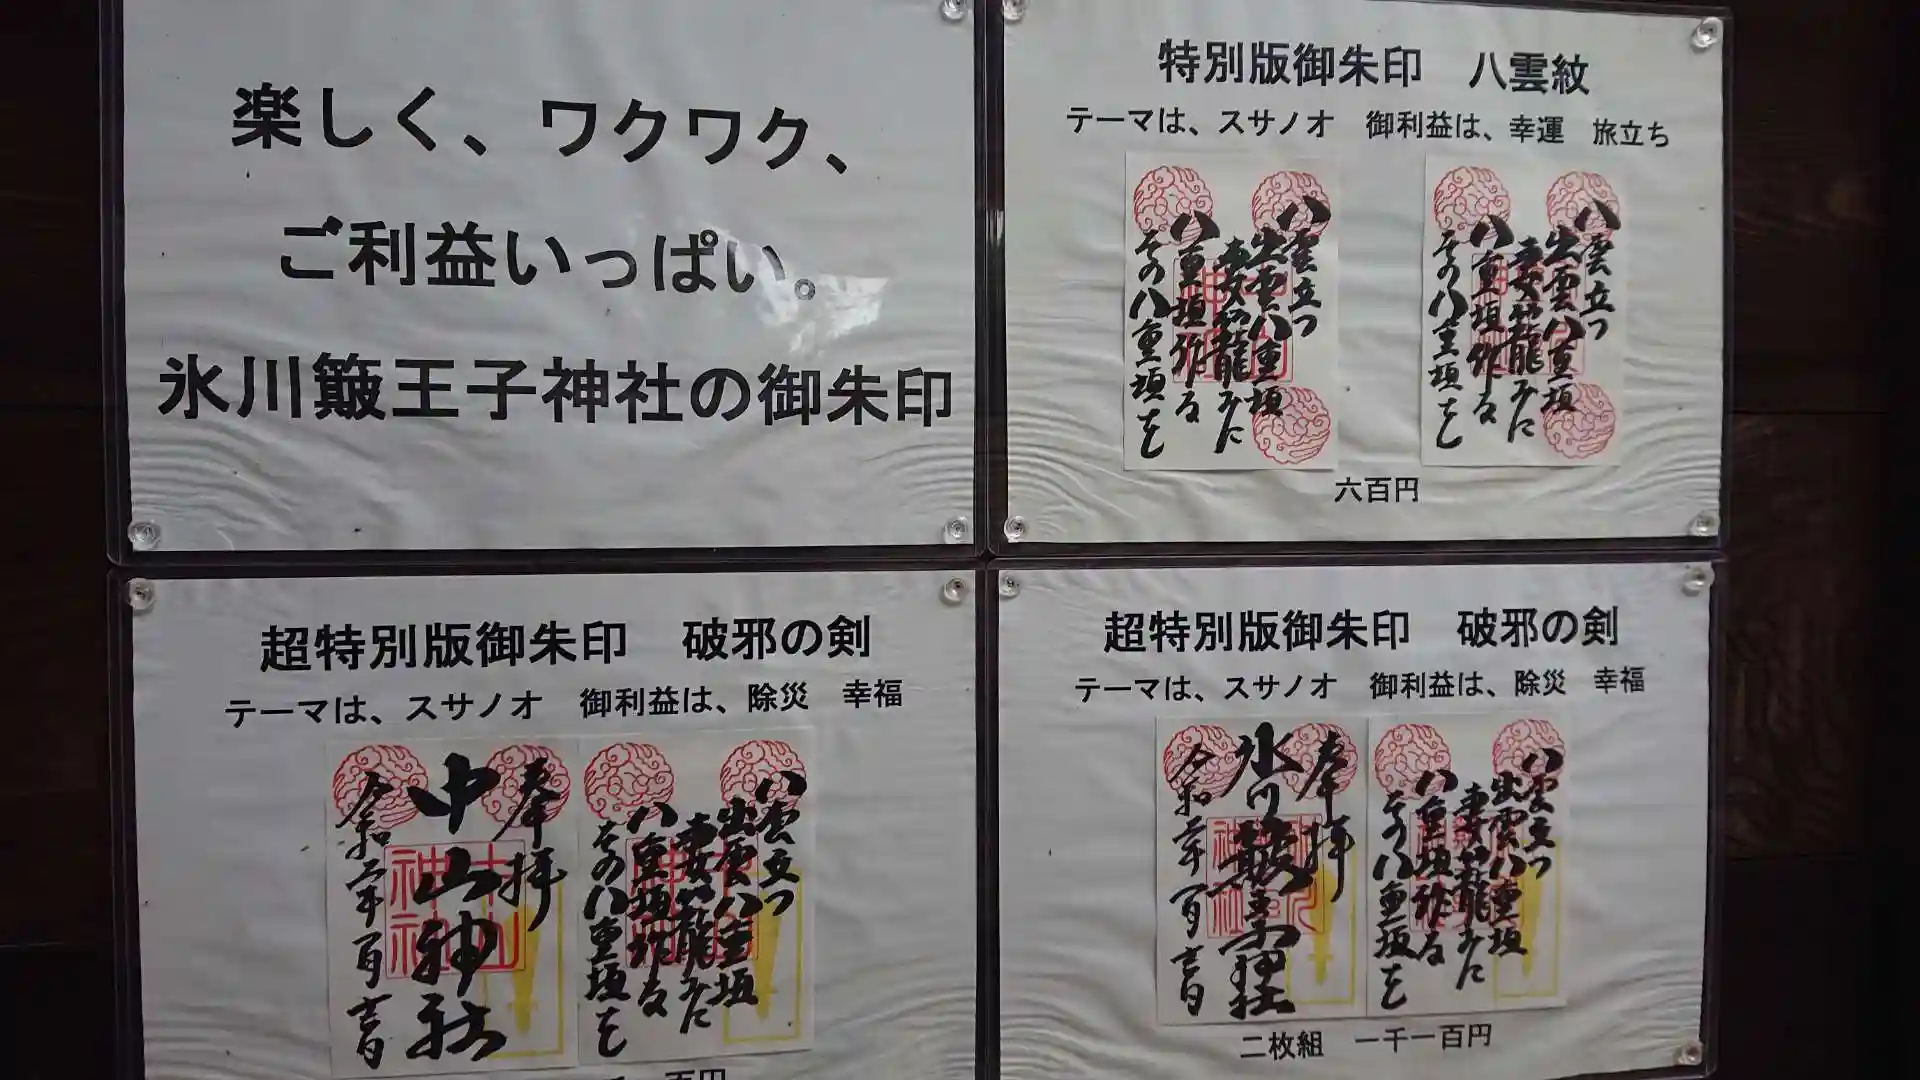 楽しく、ワクワク、
ご利益いっぱい。
氷川簸王子神社の御朱印
特別版御朱印 八雲紋
テーマは、スサノオ 御利益は、幸運 旅立ち
八雲立つ
出雲八重垣
妻籠みに
八重垣作る
その八重垣を
八雲立つ
出雲八重垣
妻籠みに
八重垣作る
その八重垣を
六百円
超特別版御朱印 破邪の剣
テーマは、スサノオ 御利益は、除災 幸福
奉拝
中山神社
令和二年 百吉日
八雲立つ
出雲八重垣
妻籠みに
八重垣作る
その八重垣を
百円
超特別版御朱印 破邪の剣
テーマは、スサノオ 御利益は、除災 幸福
奉拝
氷川簸王子神社
八雲立つ
出雲八重垣
妻籠みに
八重垣作る
その八重垣を
二枚組 一千一百円